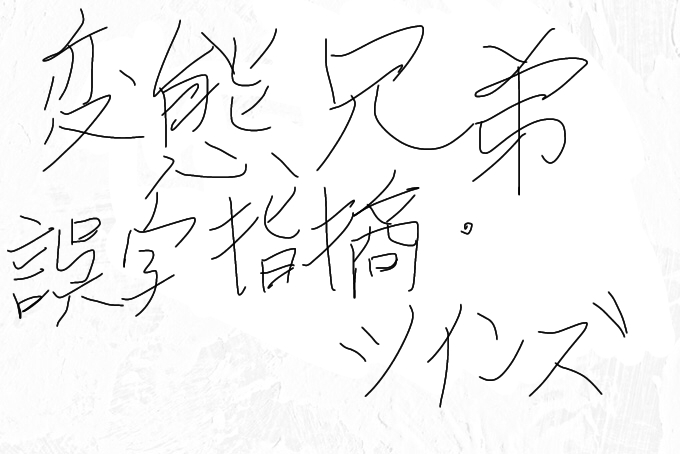 変態兄弟
誤字指摘・
ツインズ